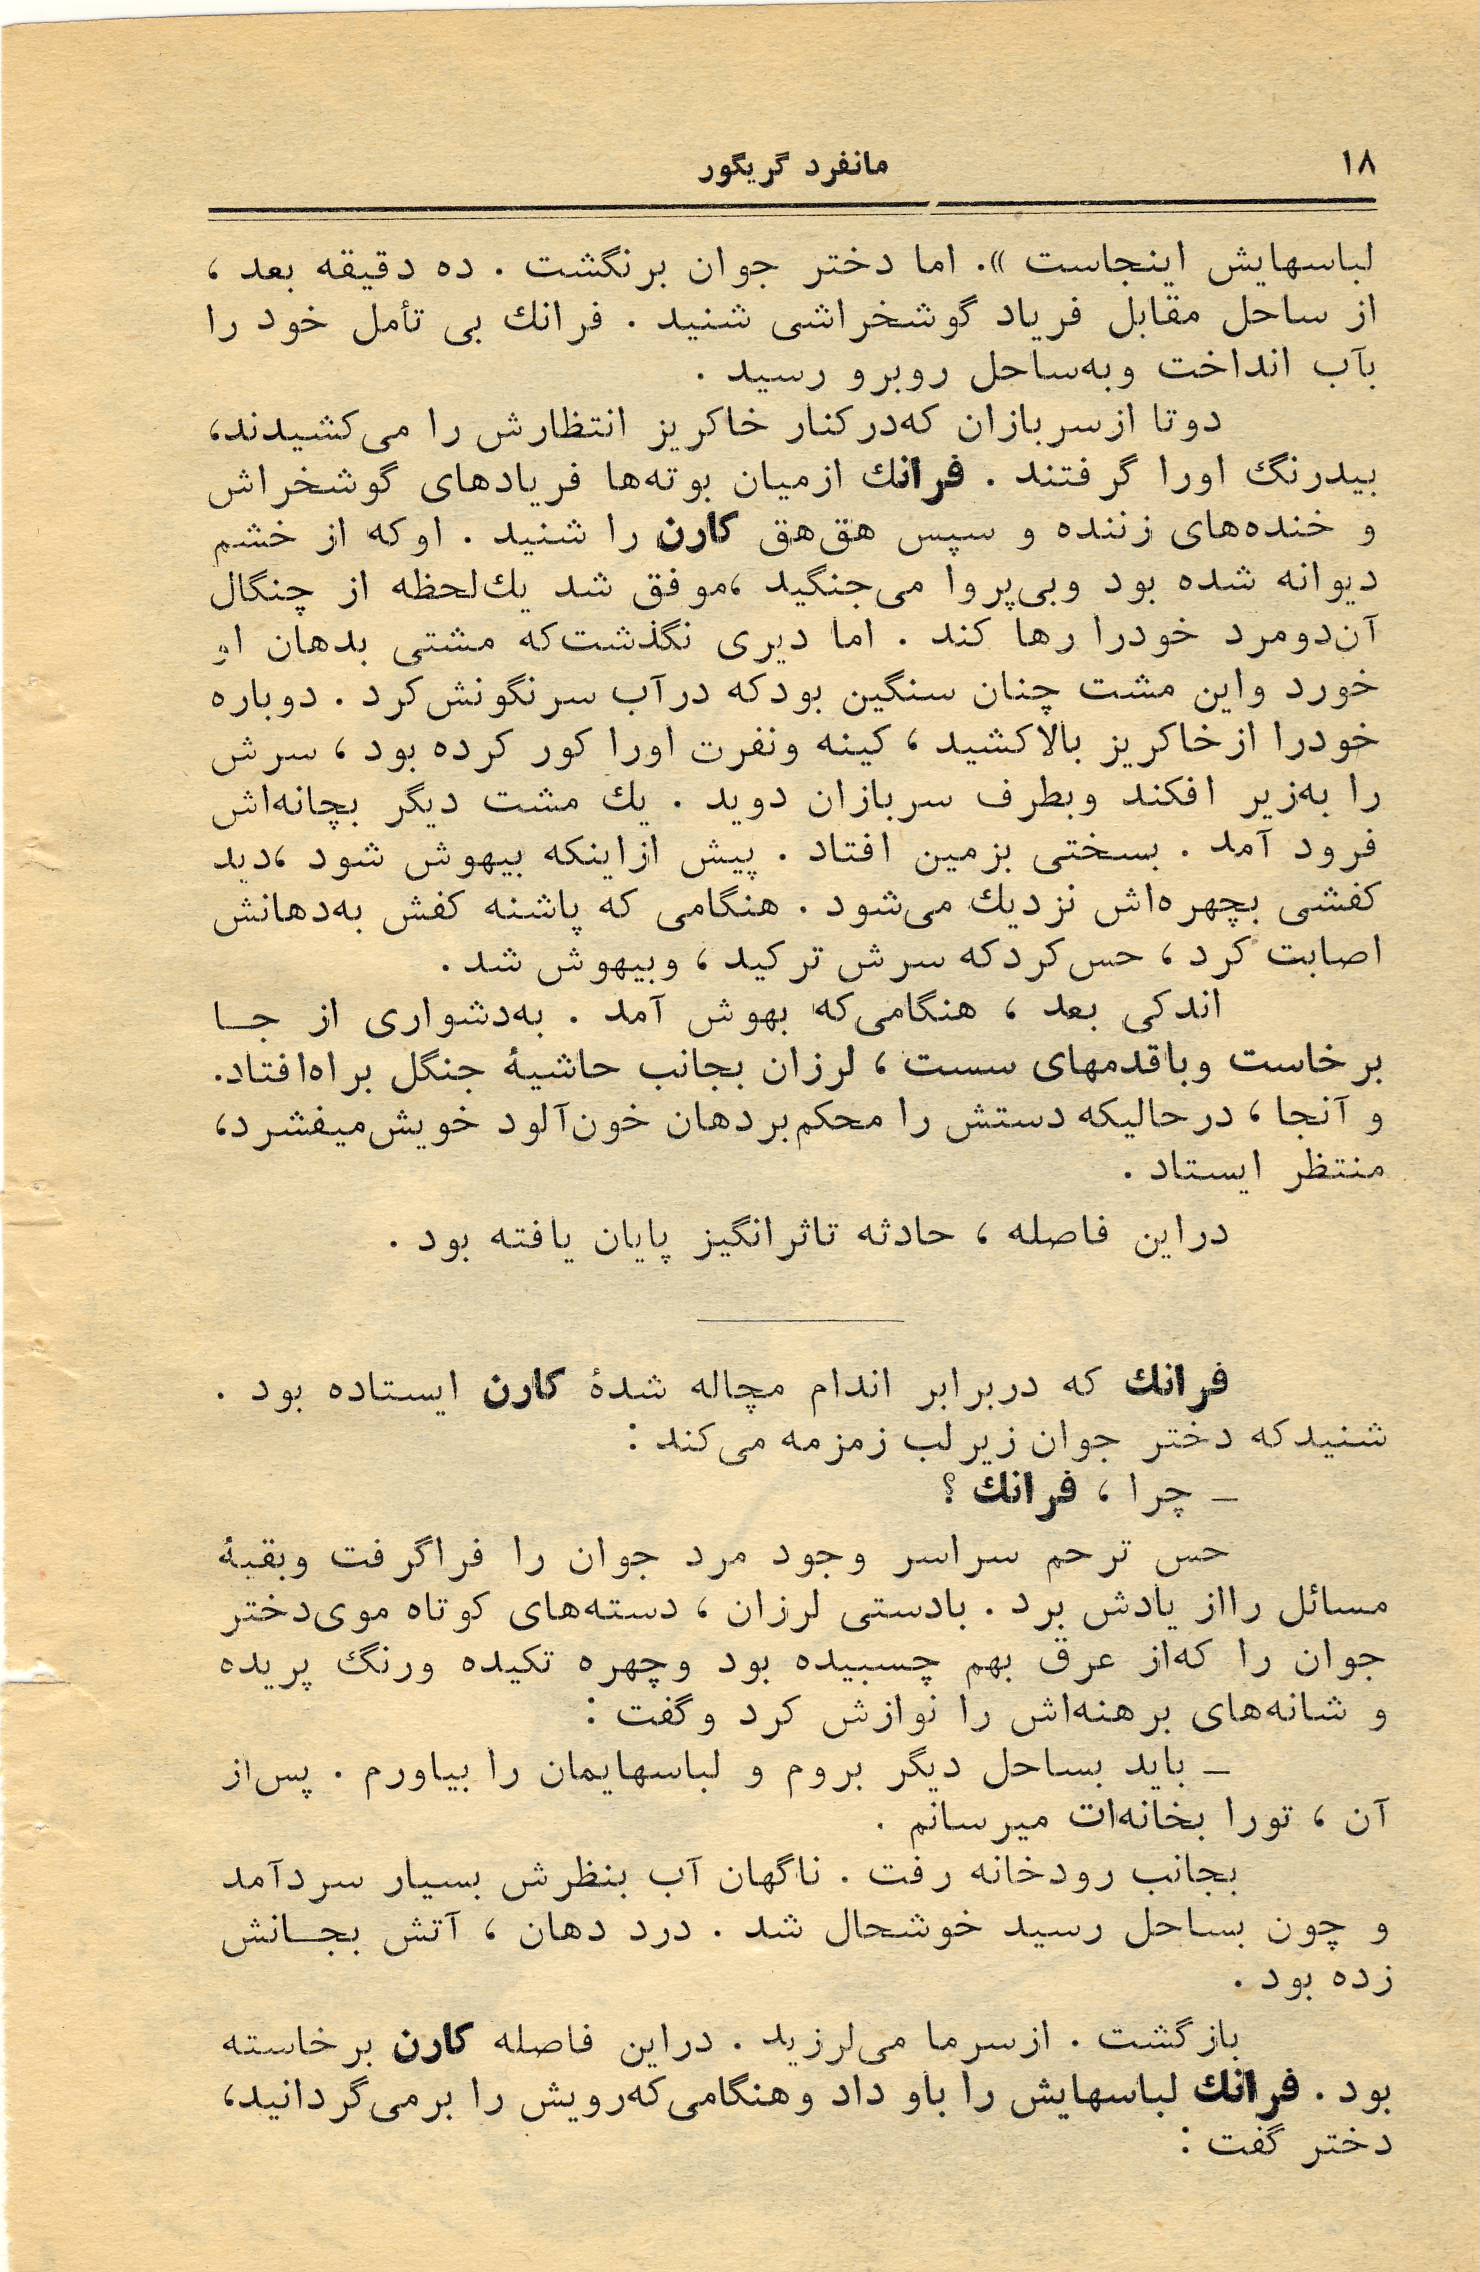 ۱۸
مانفرد گریگور
لباسهایش اینجاست )). اما دختر جوان برنگشت . ده دقیقه بعد ،
از ساحل مقابل فریاد گوشخراشی شنید . فرانك بی تأمل خود را
بآب انداخت وبه‌ساحل روبرو رسید .
دوتا ازسربازان که‌درکنار خاکریز انتظارش را می‌کشیدند،
بیدرنگ اورا گرفتند . فرانك ازمیان بوته‌ها فریادهای گوشخراش
و خنده‌های زننده و سپس هق‌هق کارن را شنید . اوکه از خشم
دیوانه شده بود وبی‌پروا می‌جنگید ،موفق شد یك‌لحظه از چنگال
آن‌دومرد خودرا رها کند . اما دیری نگذشت‌که مشتی بدهان او
خورد واین مشت چنان سنگین بودکه درآب سرنگونش‌کرد . دوباره
خودرا ازخاکریز بالاکشید ، کینه ونفرت اورا کور کرده بود ، سرش
را به‌زیر افکند وبطرف سربازان دوید . یك مشت دیگر بچانه‌اش
فرود آمد . بسختی بزمین افتاد . پیش ازاینکه بیهوش شود ،دید
کفشی بچهره‌اش نزدیك می‌شود . هنگامی که پاشنه کفش به‌دهانش
اصابت کرد ، حس‌کردکه سرش ترکید ، وبیهوش شد .
اندکی بعد ، هنگامی‌که بهوش آمد . به‌دشواری از جـا
برخاست وباقدمهای سست ، لرزان بجانب حاشیهٔ جنگل براه‌افتاد.
و آنجا ، درحالیکه دستش را محکم‌بردهان خون‌آلود خویش‌میفشرد،
منتظر ایستاد .
دراین فاصله ، حادثه تاثرانگیز پایان یافته بود .
فرانك که دربرابر اندام مچاله شدهٔ کارن ایستاده بود .
شنیدکه دختر جوان زیرلب زمزمه می‌کند :
ـ چرا ، فرانك ؟
حس ترحم سراسر وجود مرد جوان را فراگرفت وبقیهٔ
مسائل رااز یادش برد . بادستی لرزان ، دسته‌های کوتاه موی‌دختر
جوان را که‌از عرق بهم چسبیده بود وچهره تکیده ورنگ پریده
و شانه‌های برهنه‌اش را نوازش کرد وگفت :
ـ باید بساحل دیگر بروم و لباسهایمان را بیاورم . پس‌از
آن ، تورا بخانه‌ات میرسانم .
بجانب رودخانه رفت . ناگهان آب بنظرش بسیار سردآمد
و چون بساحل رسید خوشحال شد . درد دهان ، آتش بجـانش
زده بود .
بازگشت . ازسرما می‌لرزید . دراین فاصله کارن برخاسته
بود . فرانك لباسهایش را باو داد وهنگامی‌که‌رویش را برمی‌گردانید،
دختر گفت :